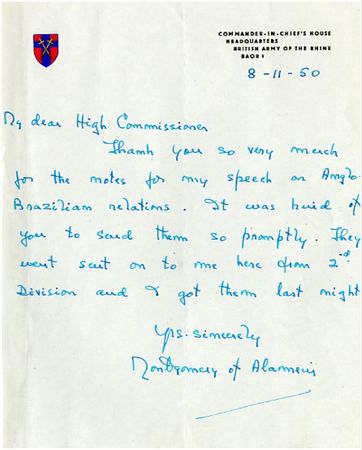 COMMANDER-IN-CHIEF'S HOUSE
HEADQUARTERS
BRITISH ARMY OF THE RHINE
BAOR 1
8-11-50
My dear High Commissioner
Thank you so very much
for the notes for my speech on Anglo-
Brazilian relations. It was kind of
you to send them so promptly. They
were sent on to me here from 2nd
Division and I got them last night
Yrs. sincerely
Montgomery of Alamein